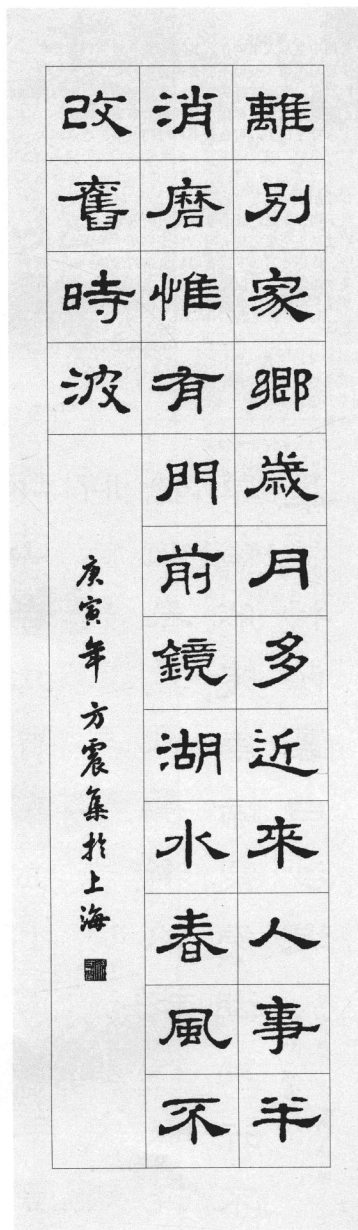 離別家鄉歲月多近來人事半
消磨惟有門前鏡湖水春風不
改舊時波
庚寅年方震集於上海